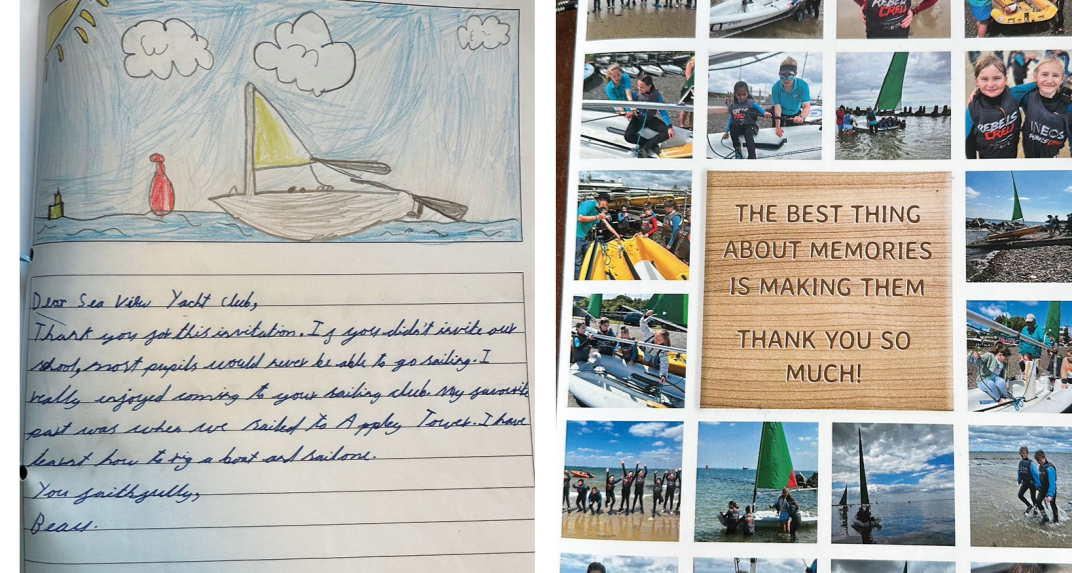 Dear Sea View Yacht Club,
Thank you for this invitation. If you didn't invite our
school, most pupils would never be able to go sailing. I
really enjoyed coming to your sailing club. My favourite
part was when we sailed to Appley Tower. I have
learnt how to rig a boat and sail one.
You faithfully,
Bears.
REBELS
CREW
REBELS
CREW
INEOS
THE BEST THING
ABOUT MEMORIES
IS MAKING THEM
THANK YOU SO
MUCH!